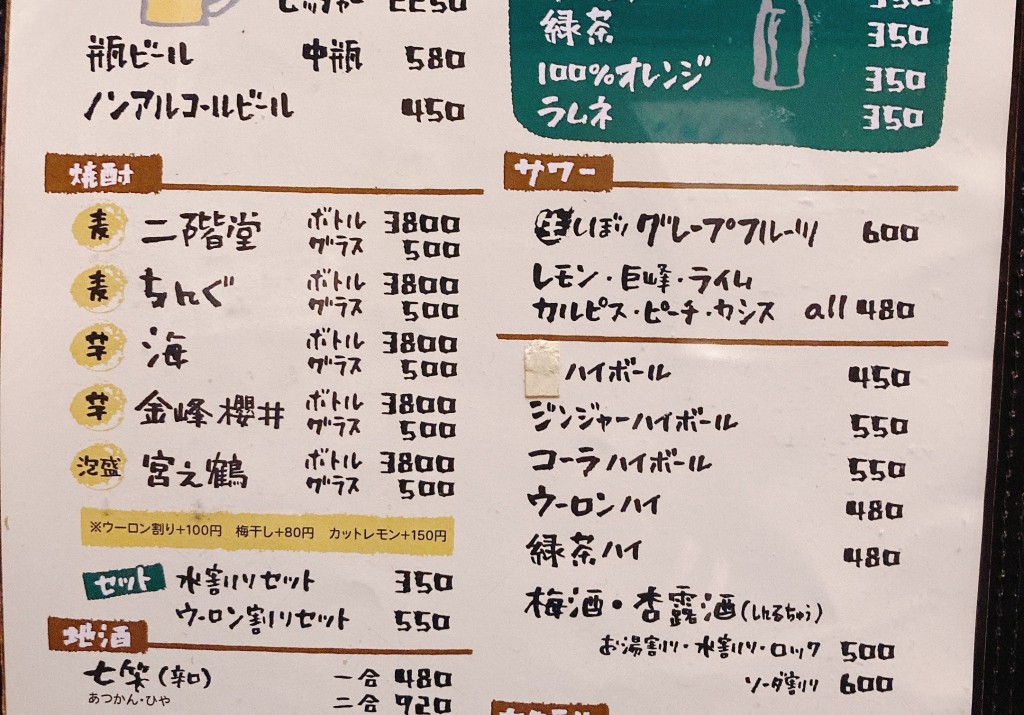 ピッチャー 2250
瓶ビール 中瓶 580
ノンアルコールビール 450
焼酎
麦 二階堂 ボトル 3800
グラス 500
麦 ちんぐ ボトル 3800
グラス 500
芋 海 ボトル 3800
グラス 500
芋 金峰櫻井 ボトル 3800
グラス 500
泡盛 宮之鶴 ボトル 3800
グラス 500
※ウーロン割り+100円 梅干し+80円 カットレモン+150円
セット 水割りセット 350
ウーロン割りセット 550
地酒
七笑(辛口) 一合 480
あつかん・ひや 二合 920
350
緑茶 350
100%オレンジ 350
ラムネ 350
サワー
生しぼりグレープフルーツ 600
レモン・巨峰・ライム
カルピス・ピーチ・カシス all 480
ハイボール 450
ジンジャーハイボール 550
コーラハイボール 550
ウーロンハイ 480
緑茶ハイ 480
梅酒・杏露酒(しんるちゅう)
お湯割り・水割り・ロック 500
ソーダ割り 600